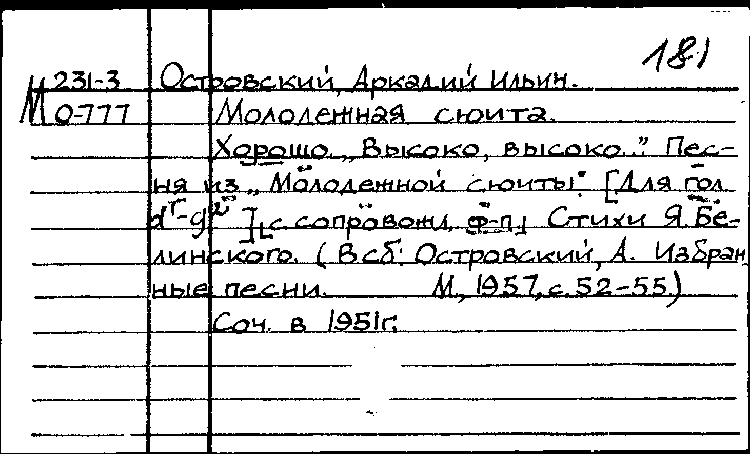 181
М 231-3 Островский, Аркадий Ильич.
О-777 Молодежная сюита.
Хорошо. „Высоко, высоко..." Пес-
ня из „Молодежной сюиты". [Для гол.
] с сопровожд. ф-п. Стихи Я. Бе-
линского. (В сб: Островский, А. Избран
ные песни. М., 1957, с. 52-55.)
Соч. в 1951г.